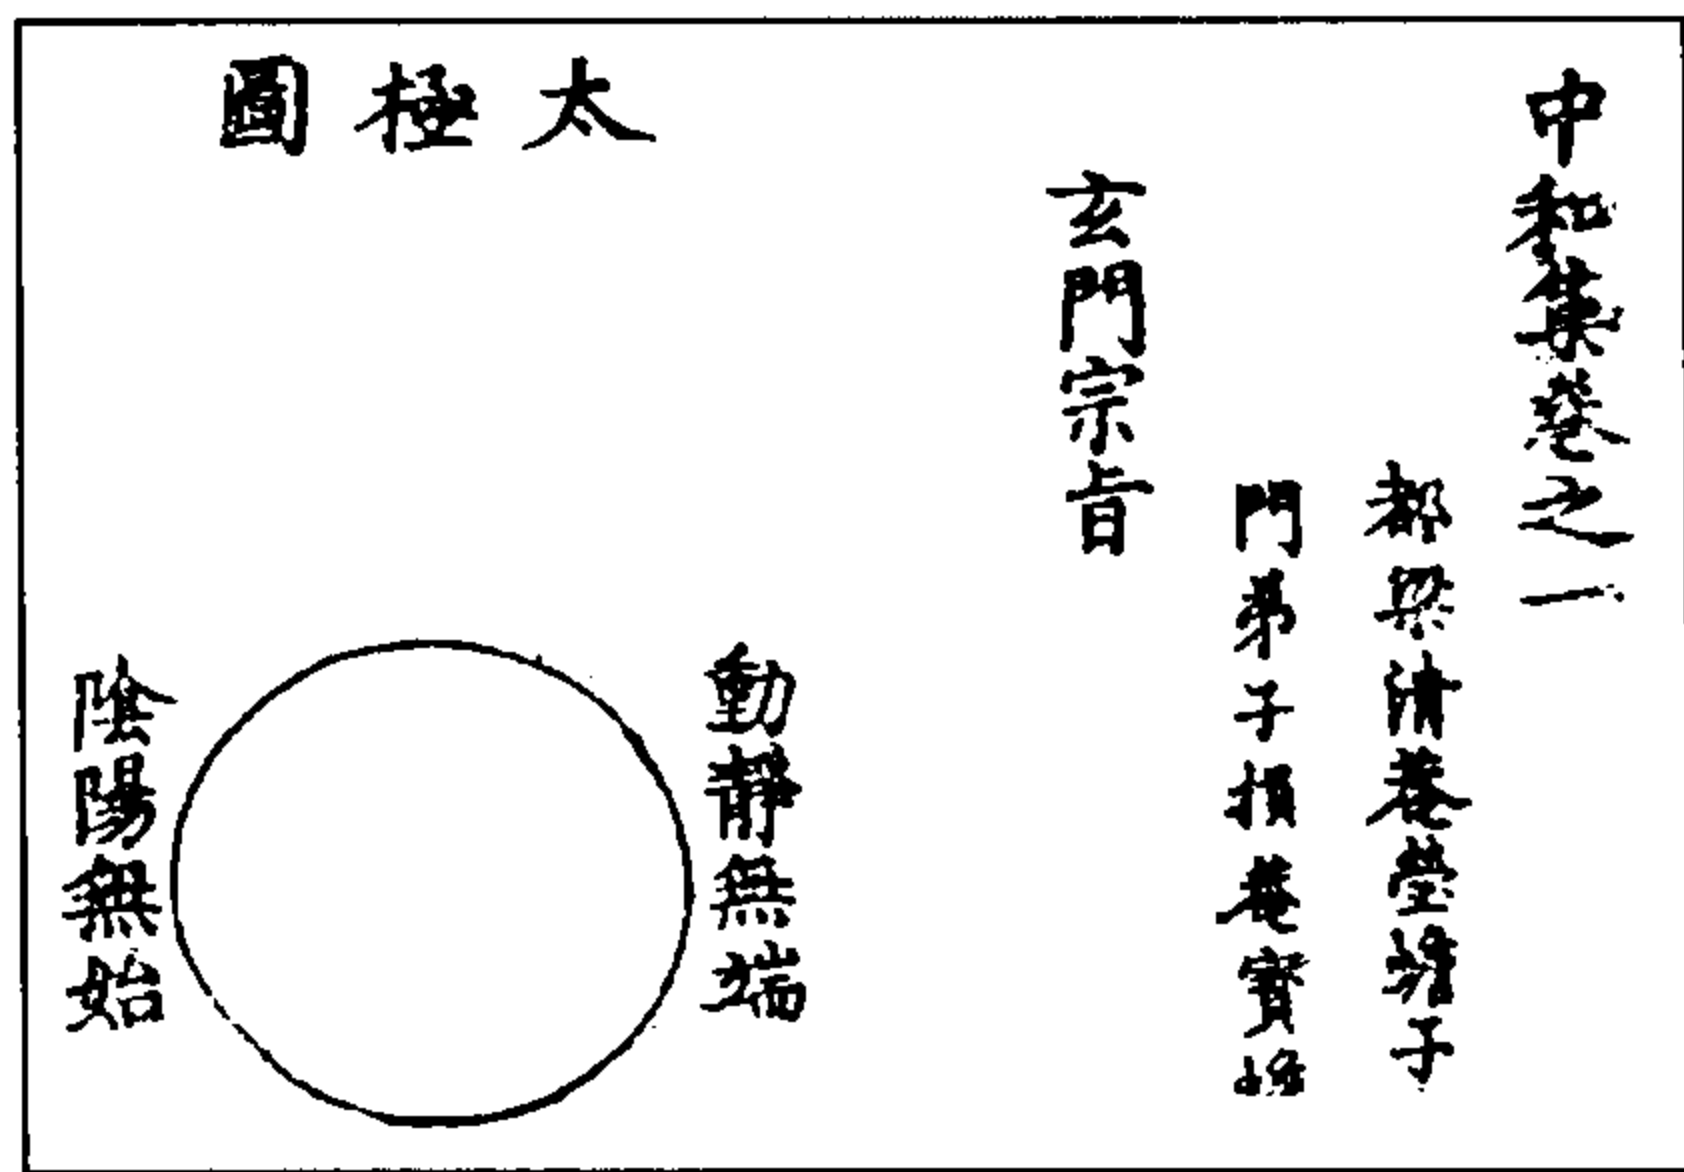 中和集卷之一
都梁清菴瑩蟾子
門弟子損菴寶
玄門宗旨
太極圖
動靜無端
陰陽無始